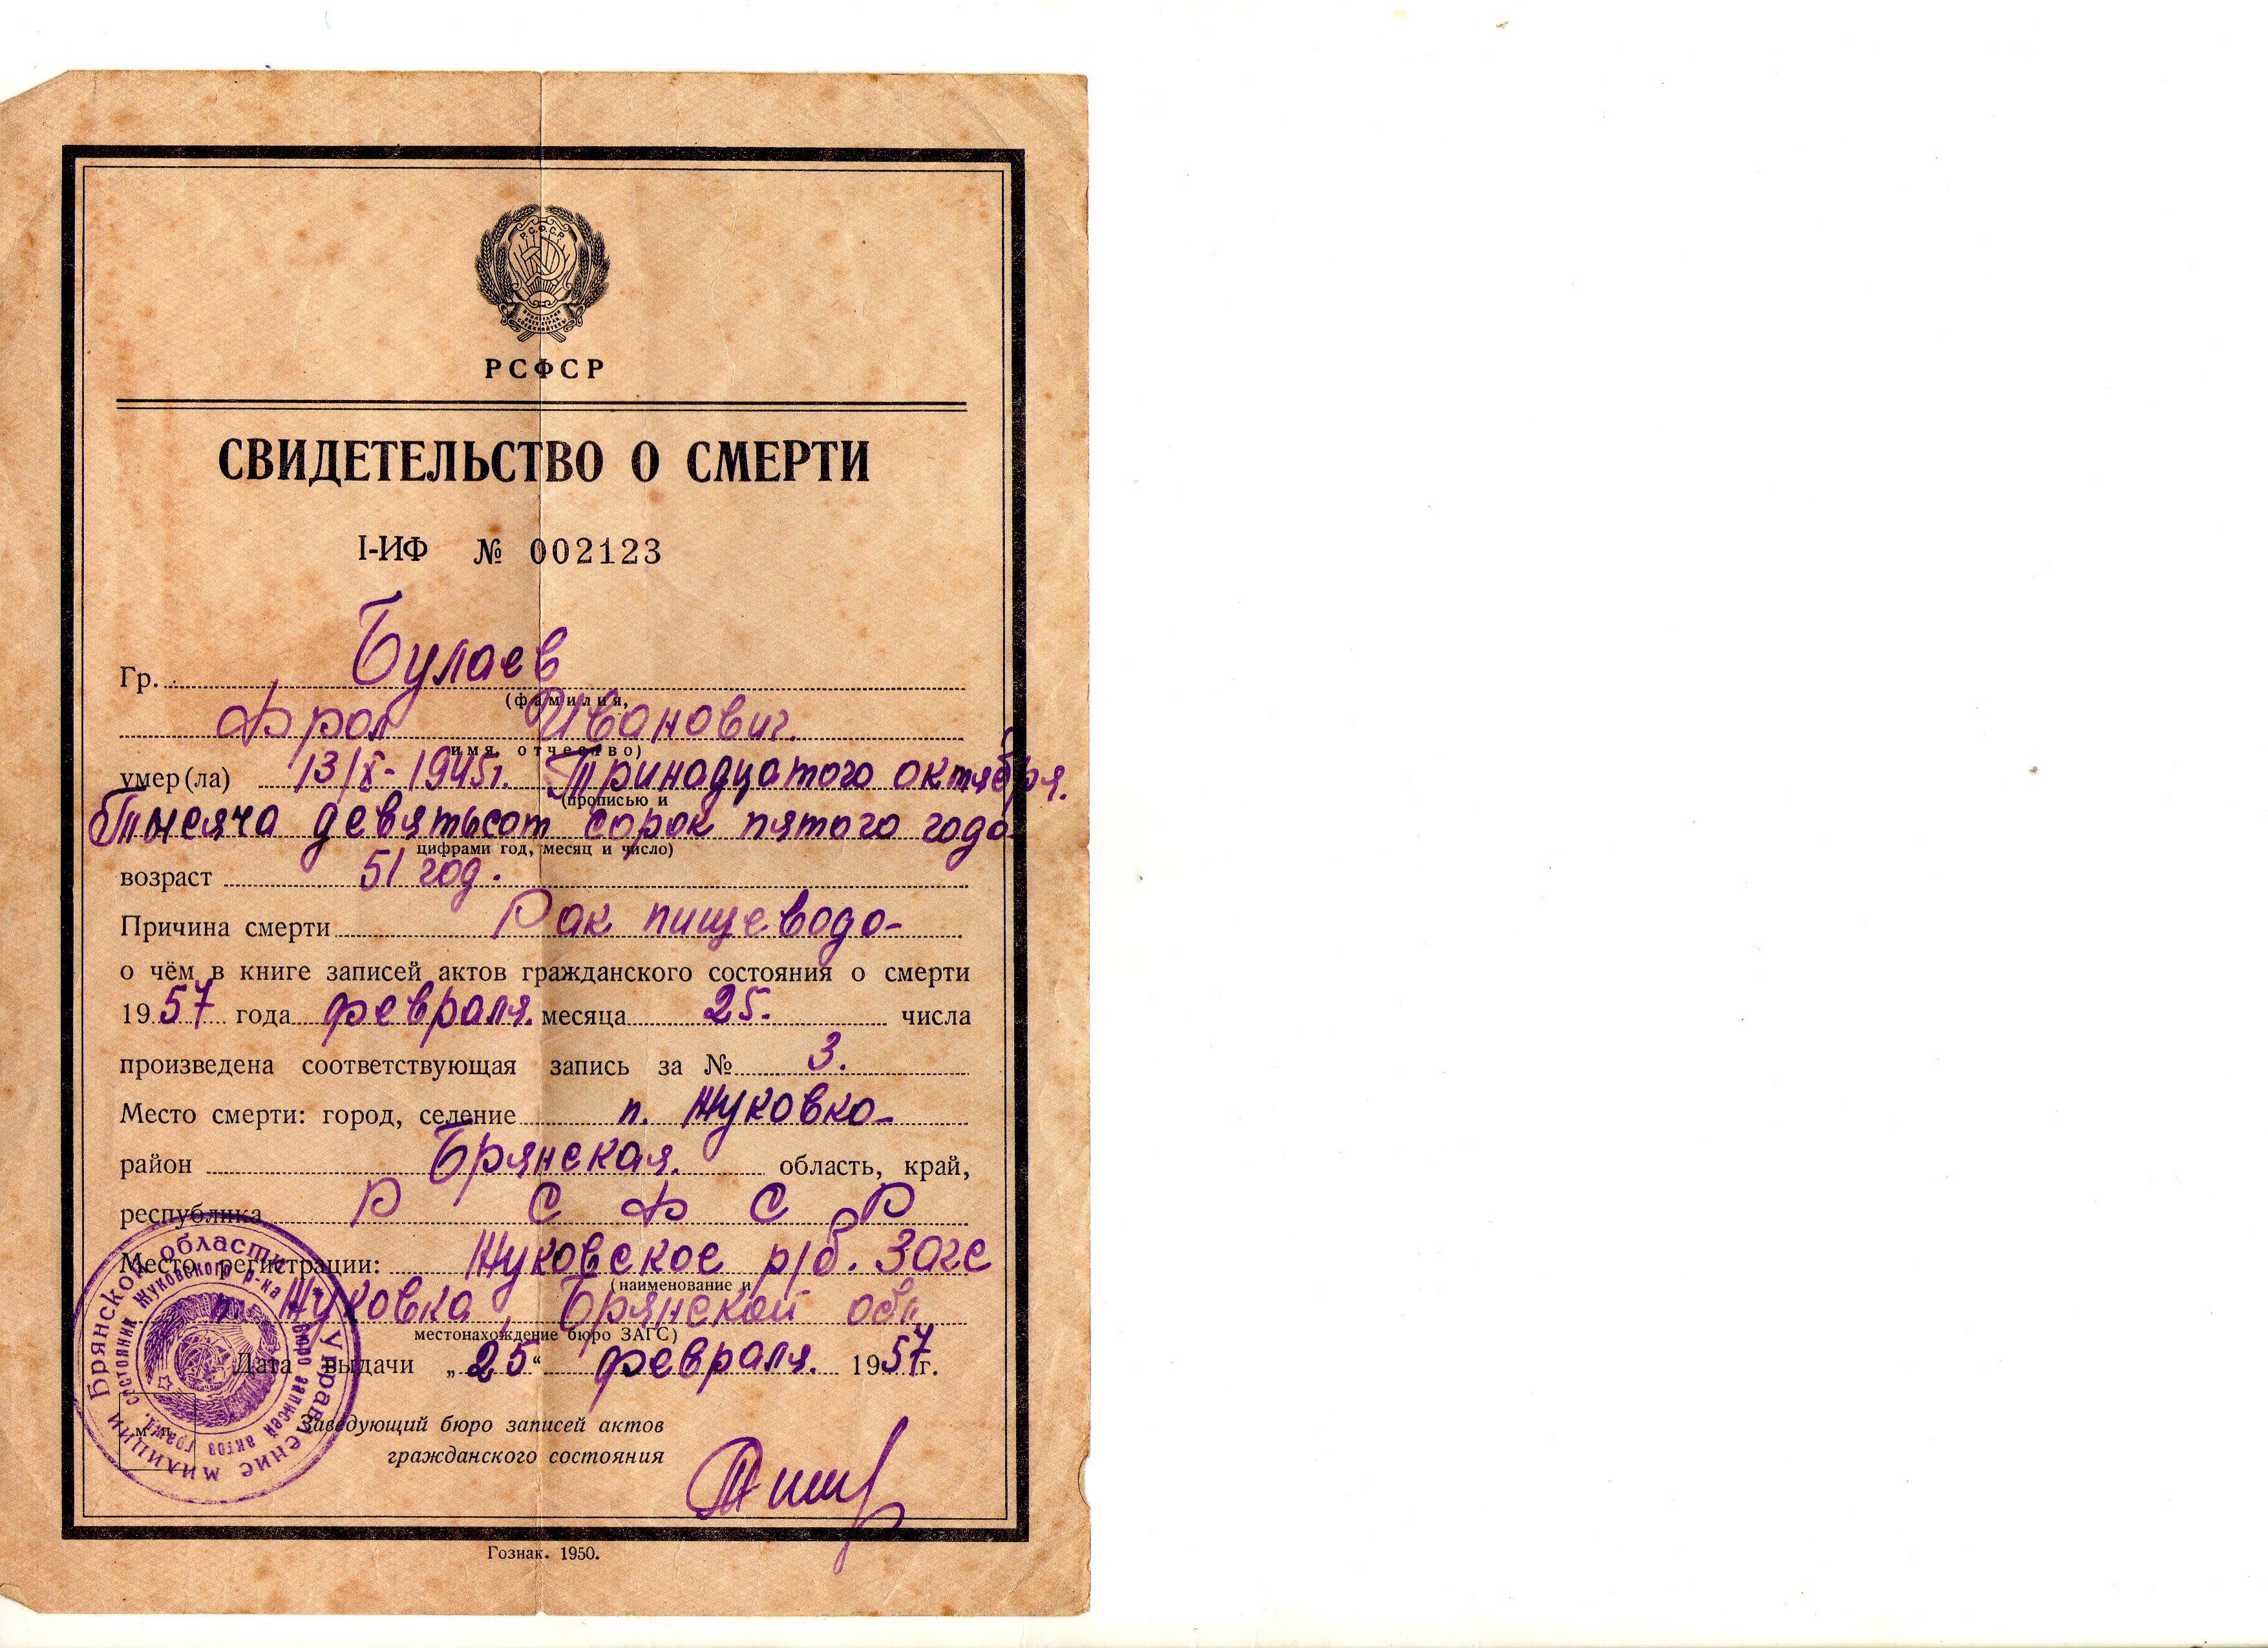 Р.С.Ф.С.Р.
РСФСР
СВИДЕТЕЛЬСТВО О СМЕРТИ
I-ИФ № 002123
Гр. Булаев
(фамилия,
Фрол Иванович.
имя, отчество)
умер(ла) 13/X-1945г. Тринадцатого октября.
(прописью и
Тысяча девятьсот сорок пятого года
цифрами год, месяц и число)
возраст 51 год.
Причина смерти Рак пищевода-
о чём в книге записей актов гражданского состояния о смерти
1957 года февраля. месяца 25. числа
произведена соответствующая запись за № 3.
Место смерти: город, селение п. Жуковка-
район Брянская. область, край,
республика Р С Ф С Р
Место регистрации: Жуковское р/б. Загс
(наименование и
п. Жуковка, Брянской обл
местонахождение бюро ЗАГС)
Дата выдачи „25“ февраля. 1957г.
Заведующий бюро записей актов
гражданского состояния
м. п.
Управление милиции Брянской области
Бюро записей актов гражд. состояния Жуковского р-на
Гознак. 1950.